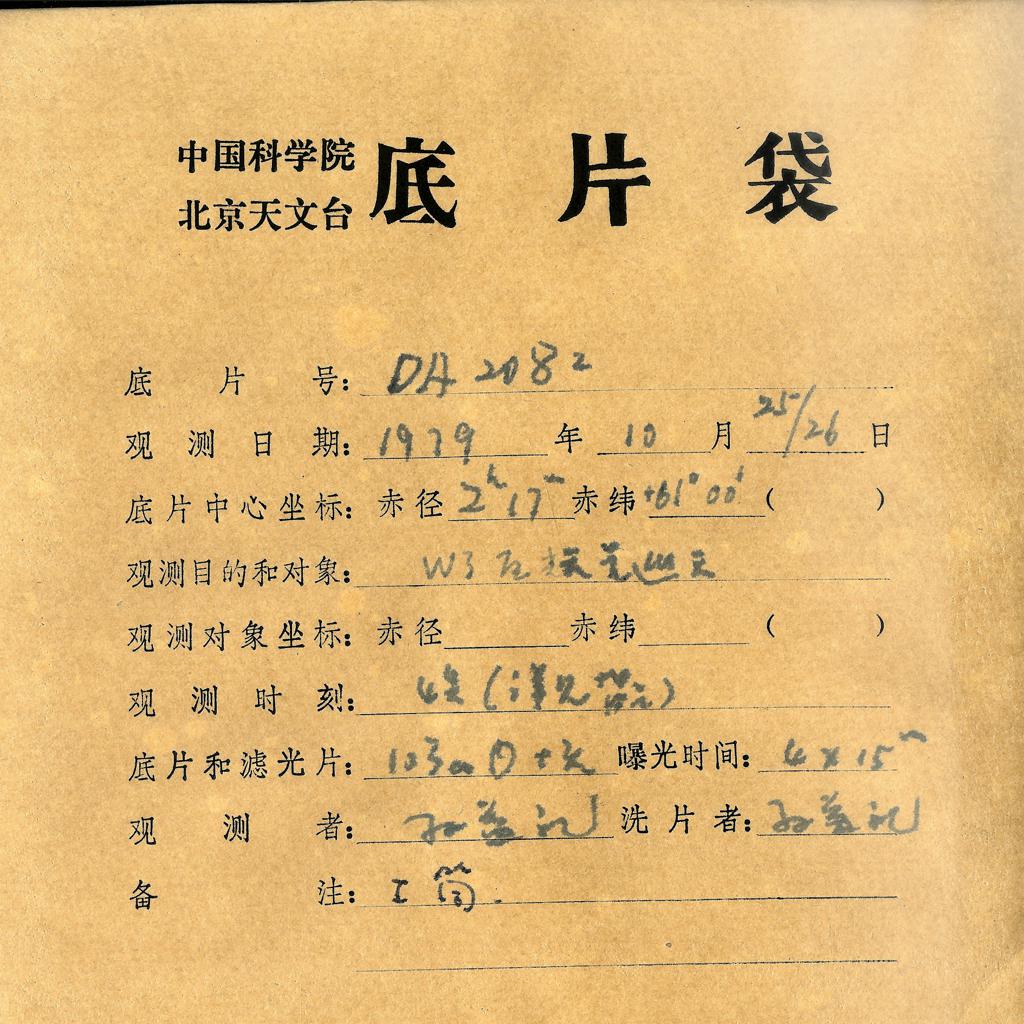 中国科学院
北京天文台
底片袋
底片号: DA 2082
观测日期: 1979年10月25/26日
底片中心坐标: 赤径 2ʰ17ᵐ 赤纬 +61°00′ ( )
观测目的和对象: W3 巡天
观测对象坐标: 赤径 赤纬 ( )
观测时刻: 4次(详见
底片和滤光片: 103aO+ 曝光时间: 4×15ᵐ
观测者: 孙益礼 洗片者: 孙益礼
备注: I筒.